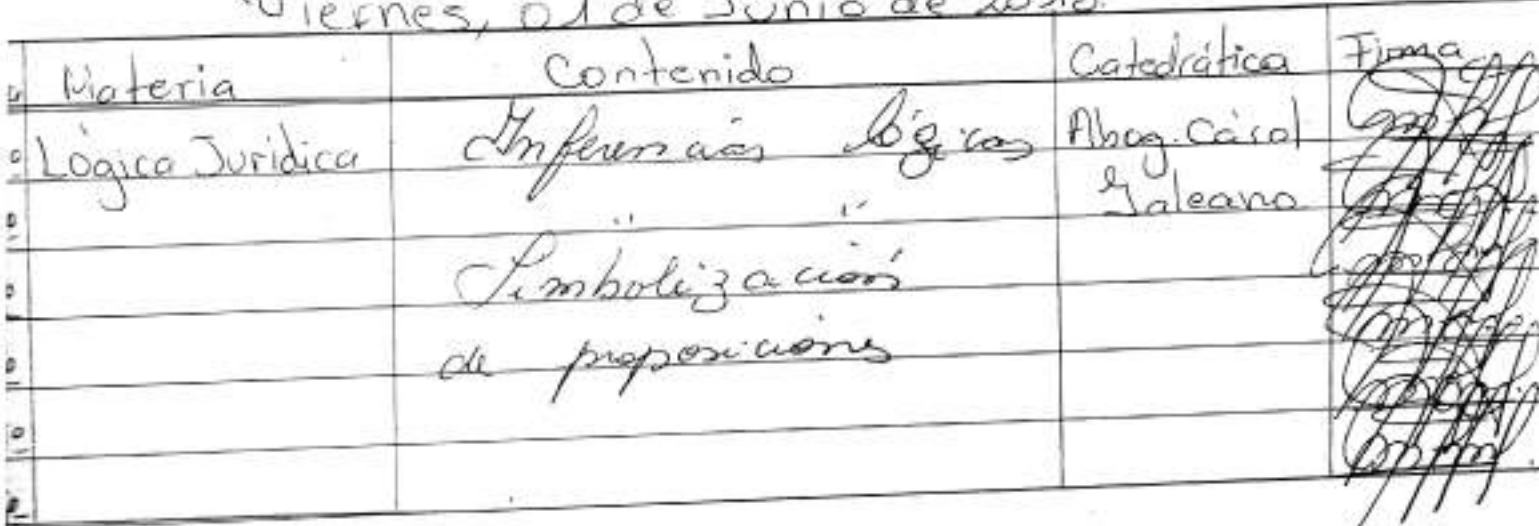 Viernes, 01 de Junio de
Materia Contenido Catedrática Firma
Lógica Jurídica Inferencias lógicas Abog. Carol
Galeano
" "
Simbolización
de proposiciones